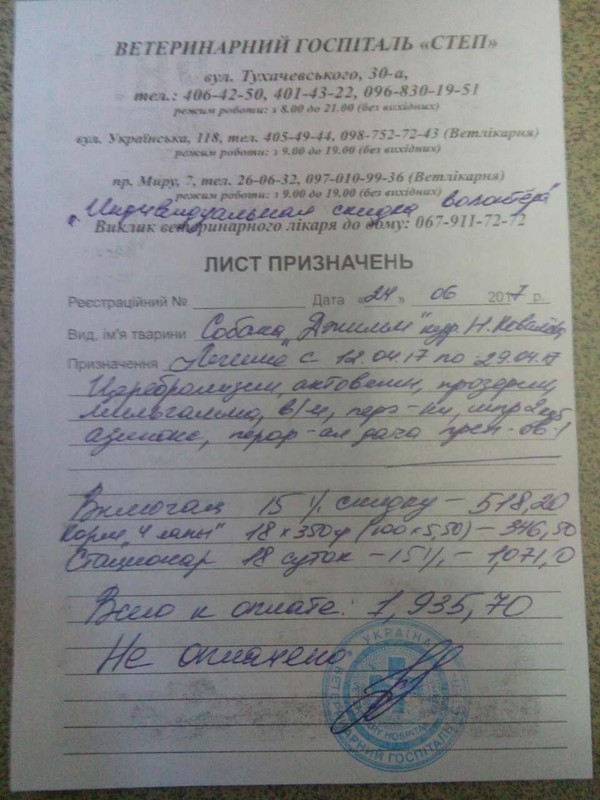 ВЕТЕРИНАРНИЙ ГОСПІТАЛЬ «СТЕП»
вул. Тухачевського, 30-а,
тел.: 406-42-50, 401-43-22, 096-830-19-51
режим роботи: з 8.00 до 21.00 (без вихідних)
вул. Українська, 118, тел. 405-49-44, 098-752-72-43 (Ветлікарня)
режим роботи: з 9.00 до 19.00 (без вихідних)
пр. Миру, 7, тел. 26-06-32, 097-010-99-36 (Ветлікарня)
режим роботи: з 9.00 до 19.00 (без вихідних)
"Индивидуальная скидка волонтёра"
Виклик ветеринарного лікаря до дому: 067-911-72-72
ЛИСТ ПРИЗНАЧЕНЬ
Реєстраційний № Дата «24» 06 2017 р.
Вид, ім'я тварини Собака "Джильи" кур. Н. Ковалёва
Призначення Лечение с 12.04.17 по 29.04.17
Церебролизин, актовегин, прозерин,
мильгамма, в/м,
Включая 15% скидку – 518,20
Корм "4 лапы" 18 х 350 г (100 х 5,50) – 346,50
Стационар 18 суток – 15% – 1,071,0
Всего к оплате: 1,935,70
Не оплачено
УКРАЇНА
ВЕТЕРИНАРНИЙ ГОСПІТАЛЬ